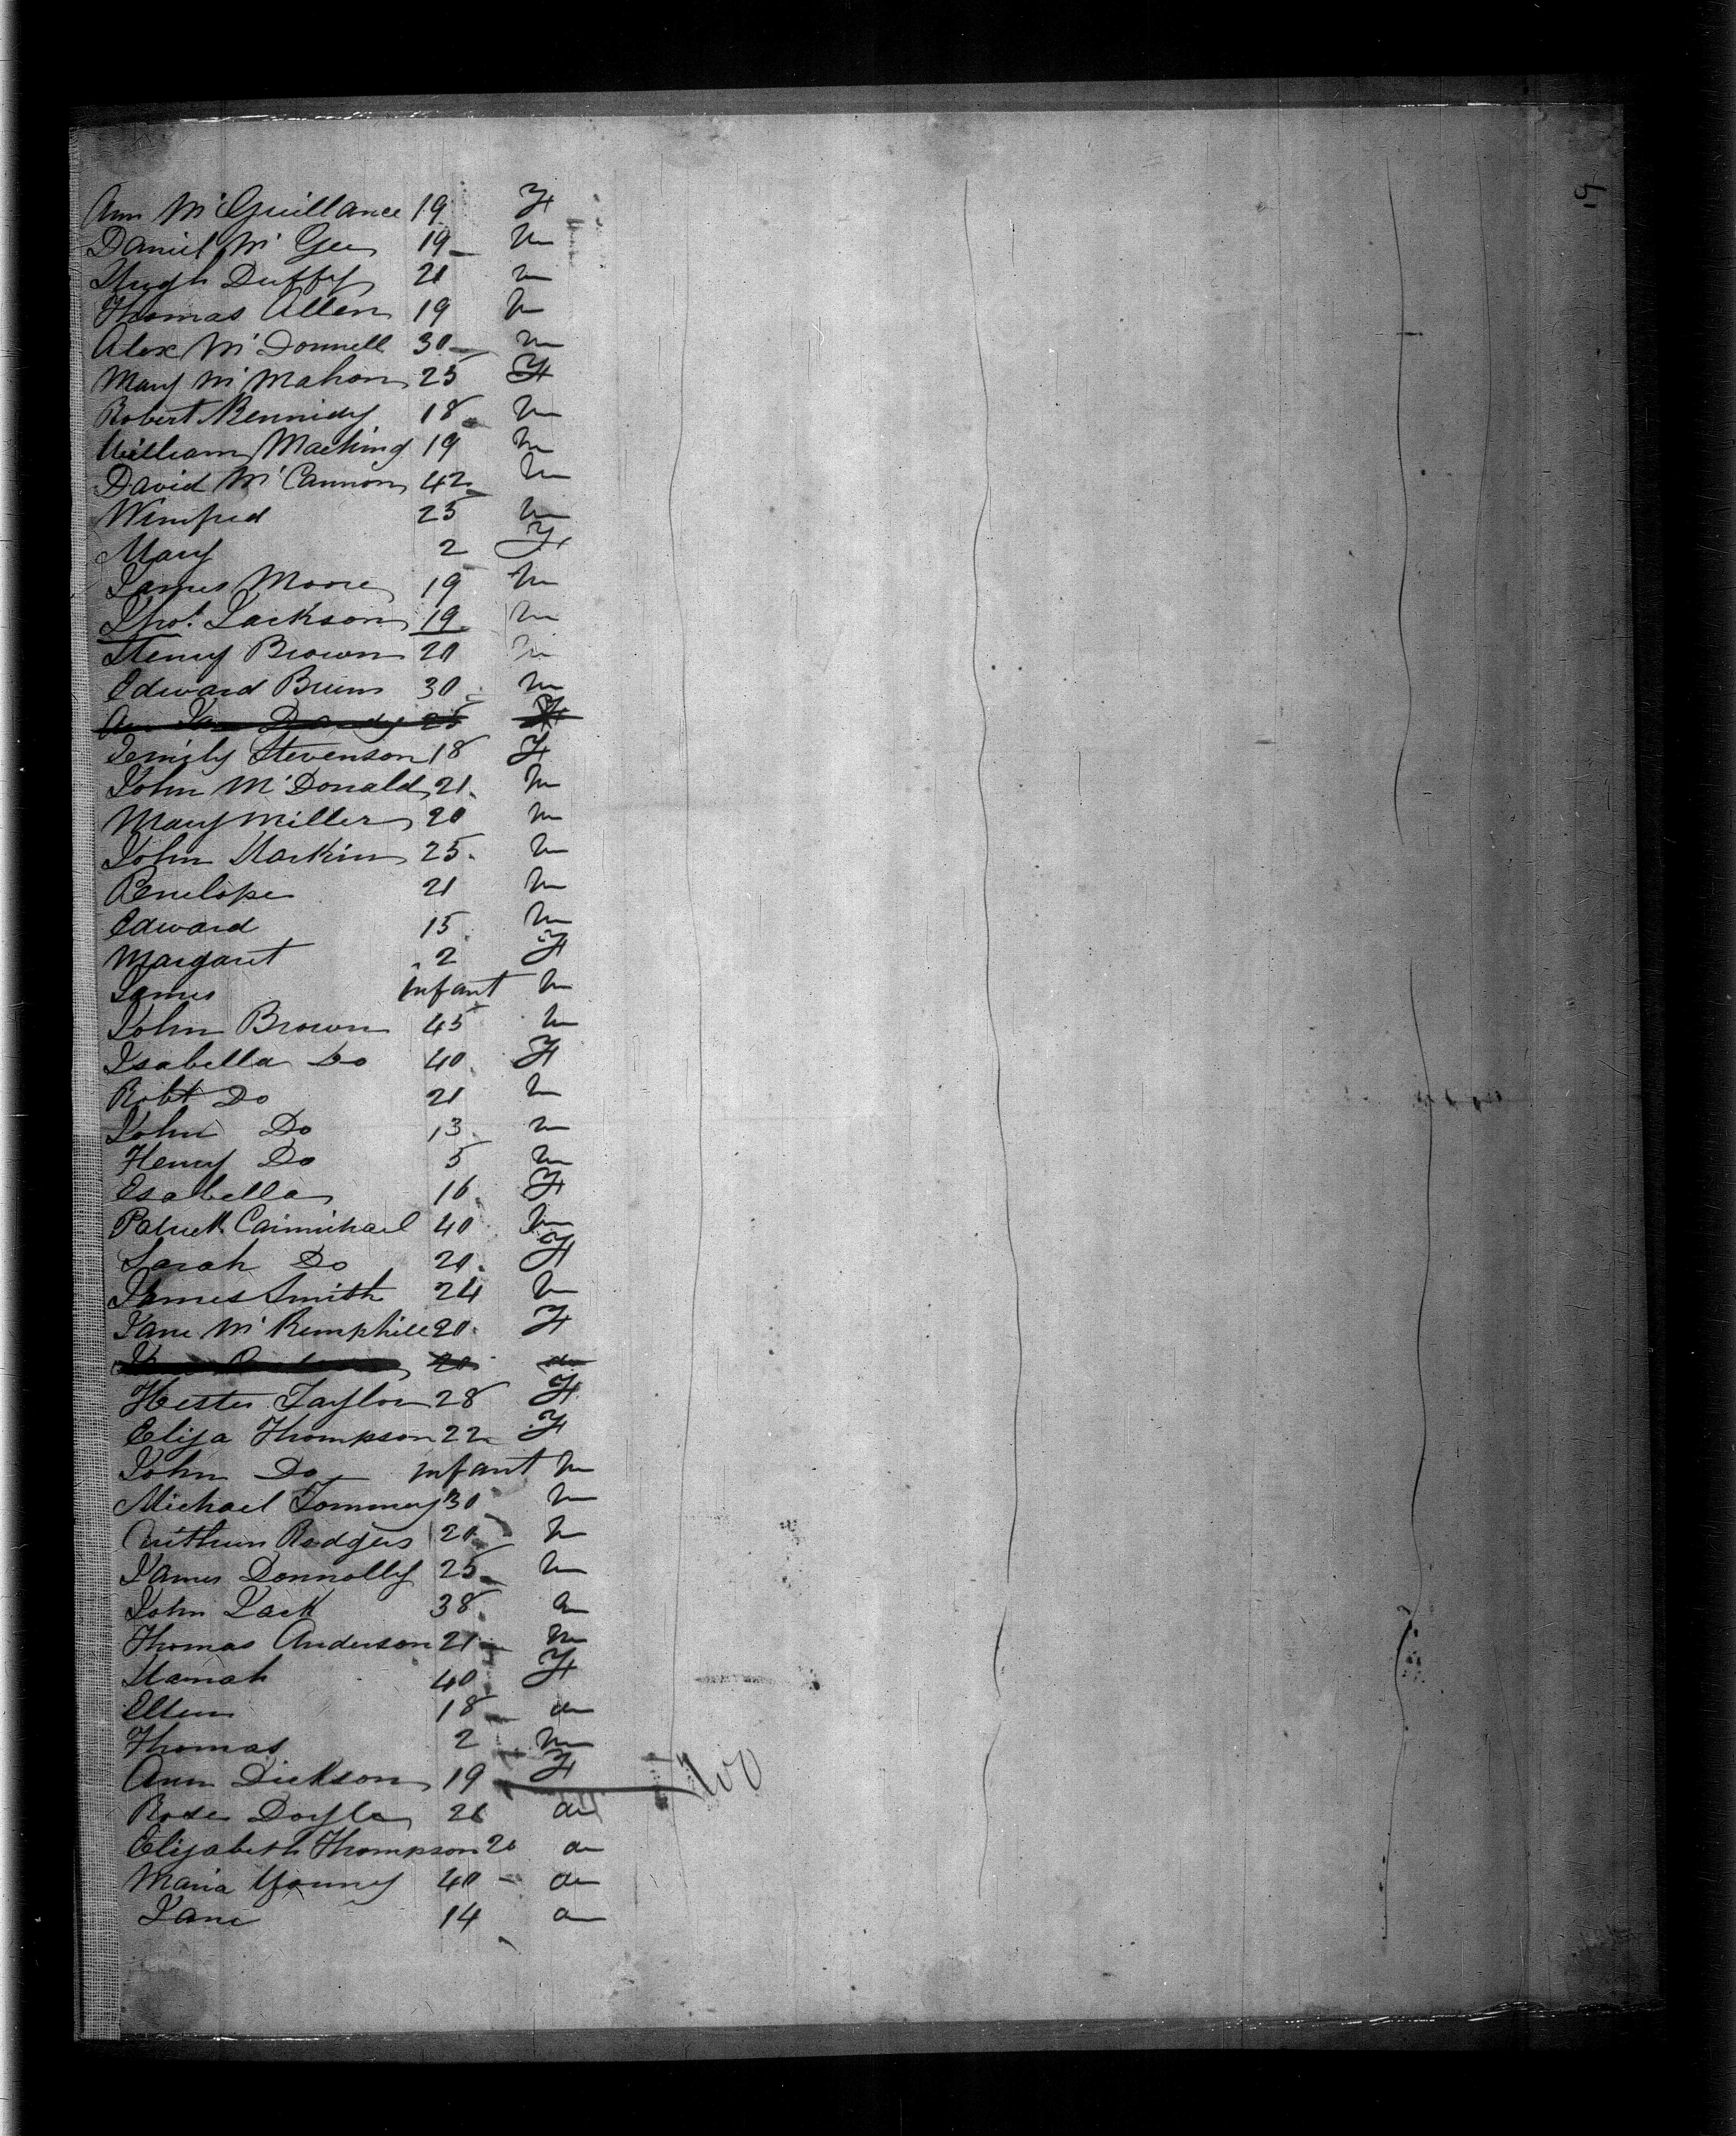 5
Ann McGuillance 19 F
Daniel McGee 19 m
Hugh Duffy 21 m
Thomas Allen 19 m
Alex McDonnell 30 m
Mary McMahon 25 F
Robert Kennidy 18 m
William Macking 19 m
David McCannon 42 m
Winifred 25 m
Mary 2 F
James Moore 19 m
Jno. Jackson 19 m
Henry Brown 20 m
Edward Bruns 30 m
25 F
Stevenson 18 F
John McDonald 21 m
Mary Miller 20 m
John Harkin 25 m
Penelope 21 m
Edward 15 m
Margaret 2 F
James infant m
John Brown 45 m
Isabella Do 40 F
Robt Do 21 m
John Do 13 m
Henry Do 5 m
Esabella 16 F
Patrick Carmichael 40 m
Sarah Do 20 F
James Smith 24 m
Jane 20 F
20 do
Hester Taylor 28 F
Eliza Thompson 22 F
John Do infant m
Michael Tommey 30 m
Rodgers 20 m
James Donnolly 25 m
John Jack 38 m
Thomas Anderson 21 m
Hannah 40 F
Ellen 18 do
Thomas 2 m
Ann Dickson 19 F 200
Rose Doyle 21 do
Elizabeth Thompson 20 do
Maria Young 40 do
Jane 14 do